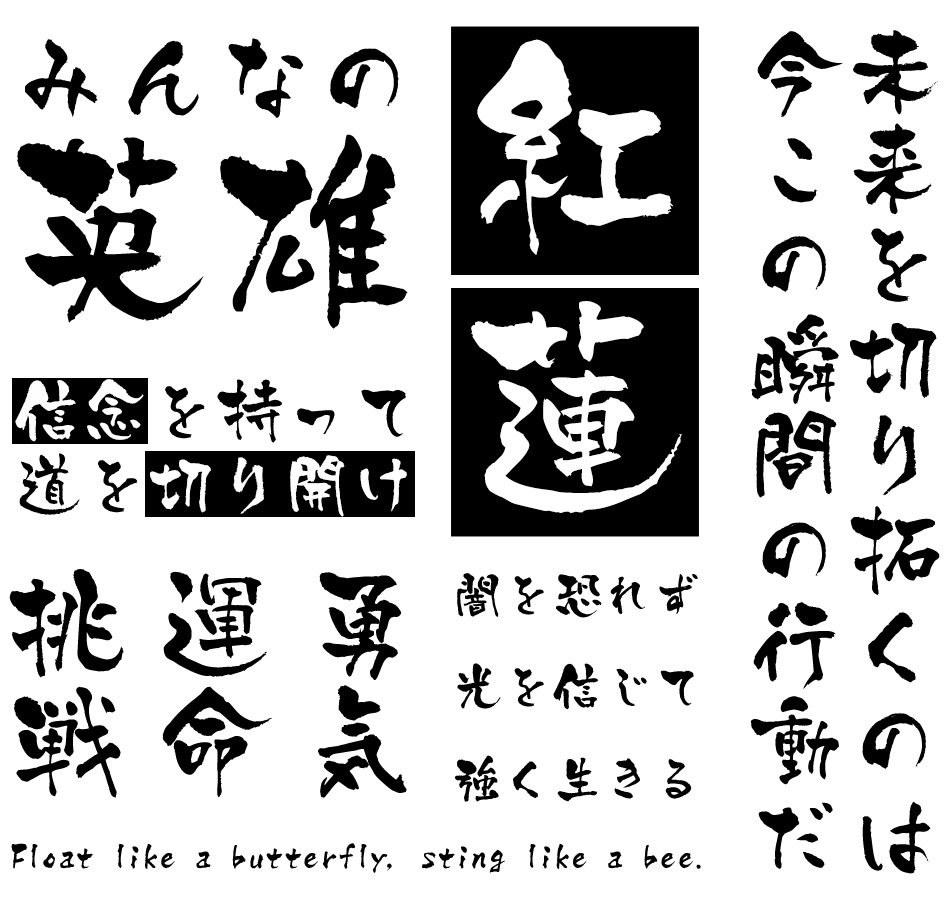 みんなの
英雄
紅
蓮
未来を切り拓くのは
今この瞬間の行動だ
信念を持って
道を切り開け
勇気
運命
挑戦
闇を恐れず
光を信じて
強く生きる
Float like a butterfly, sting like a bee.